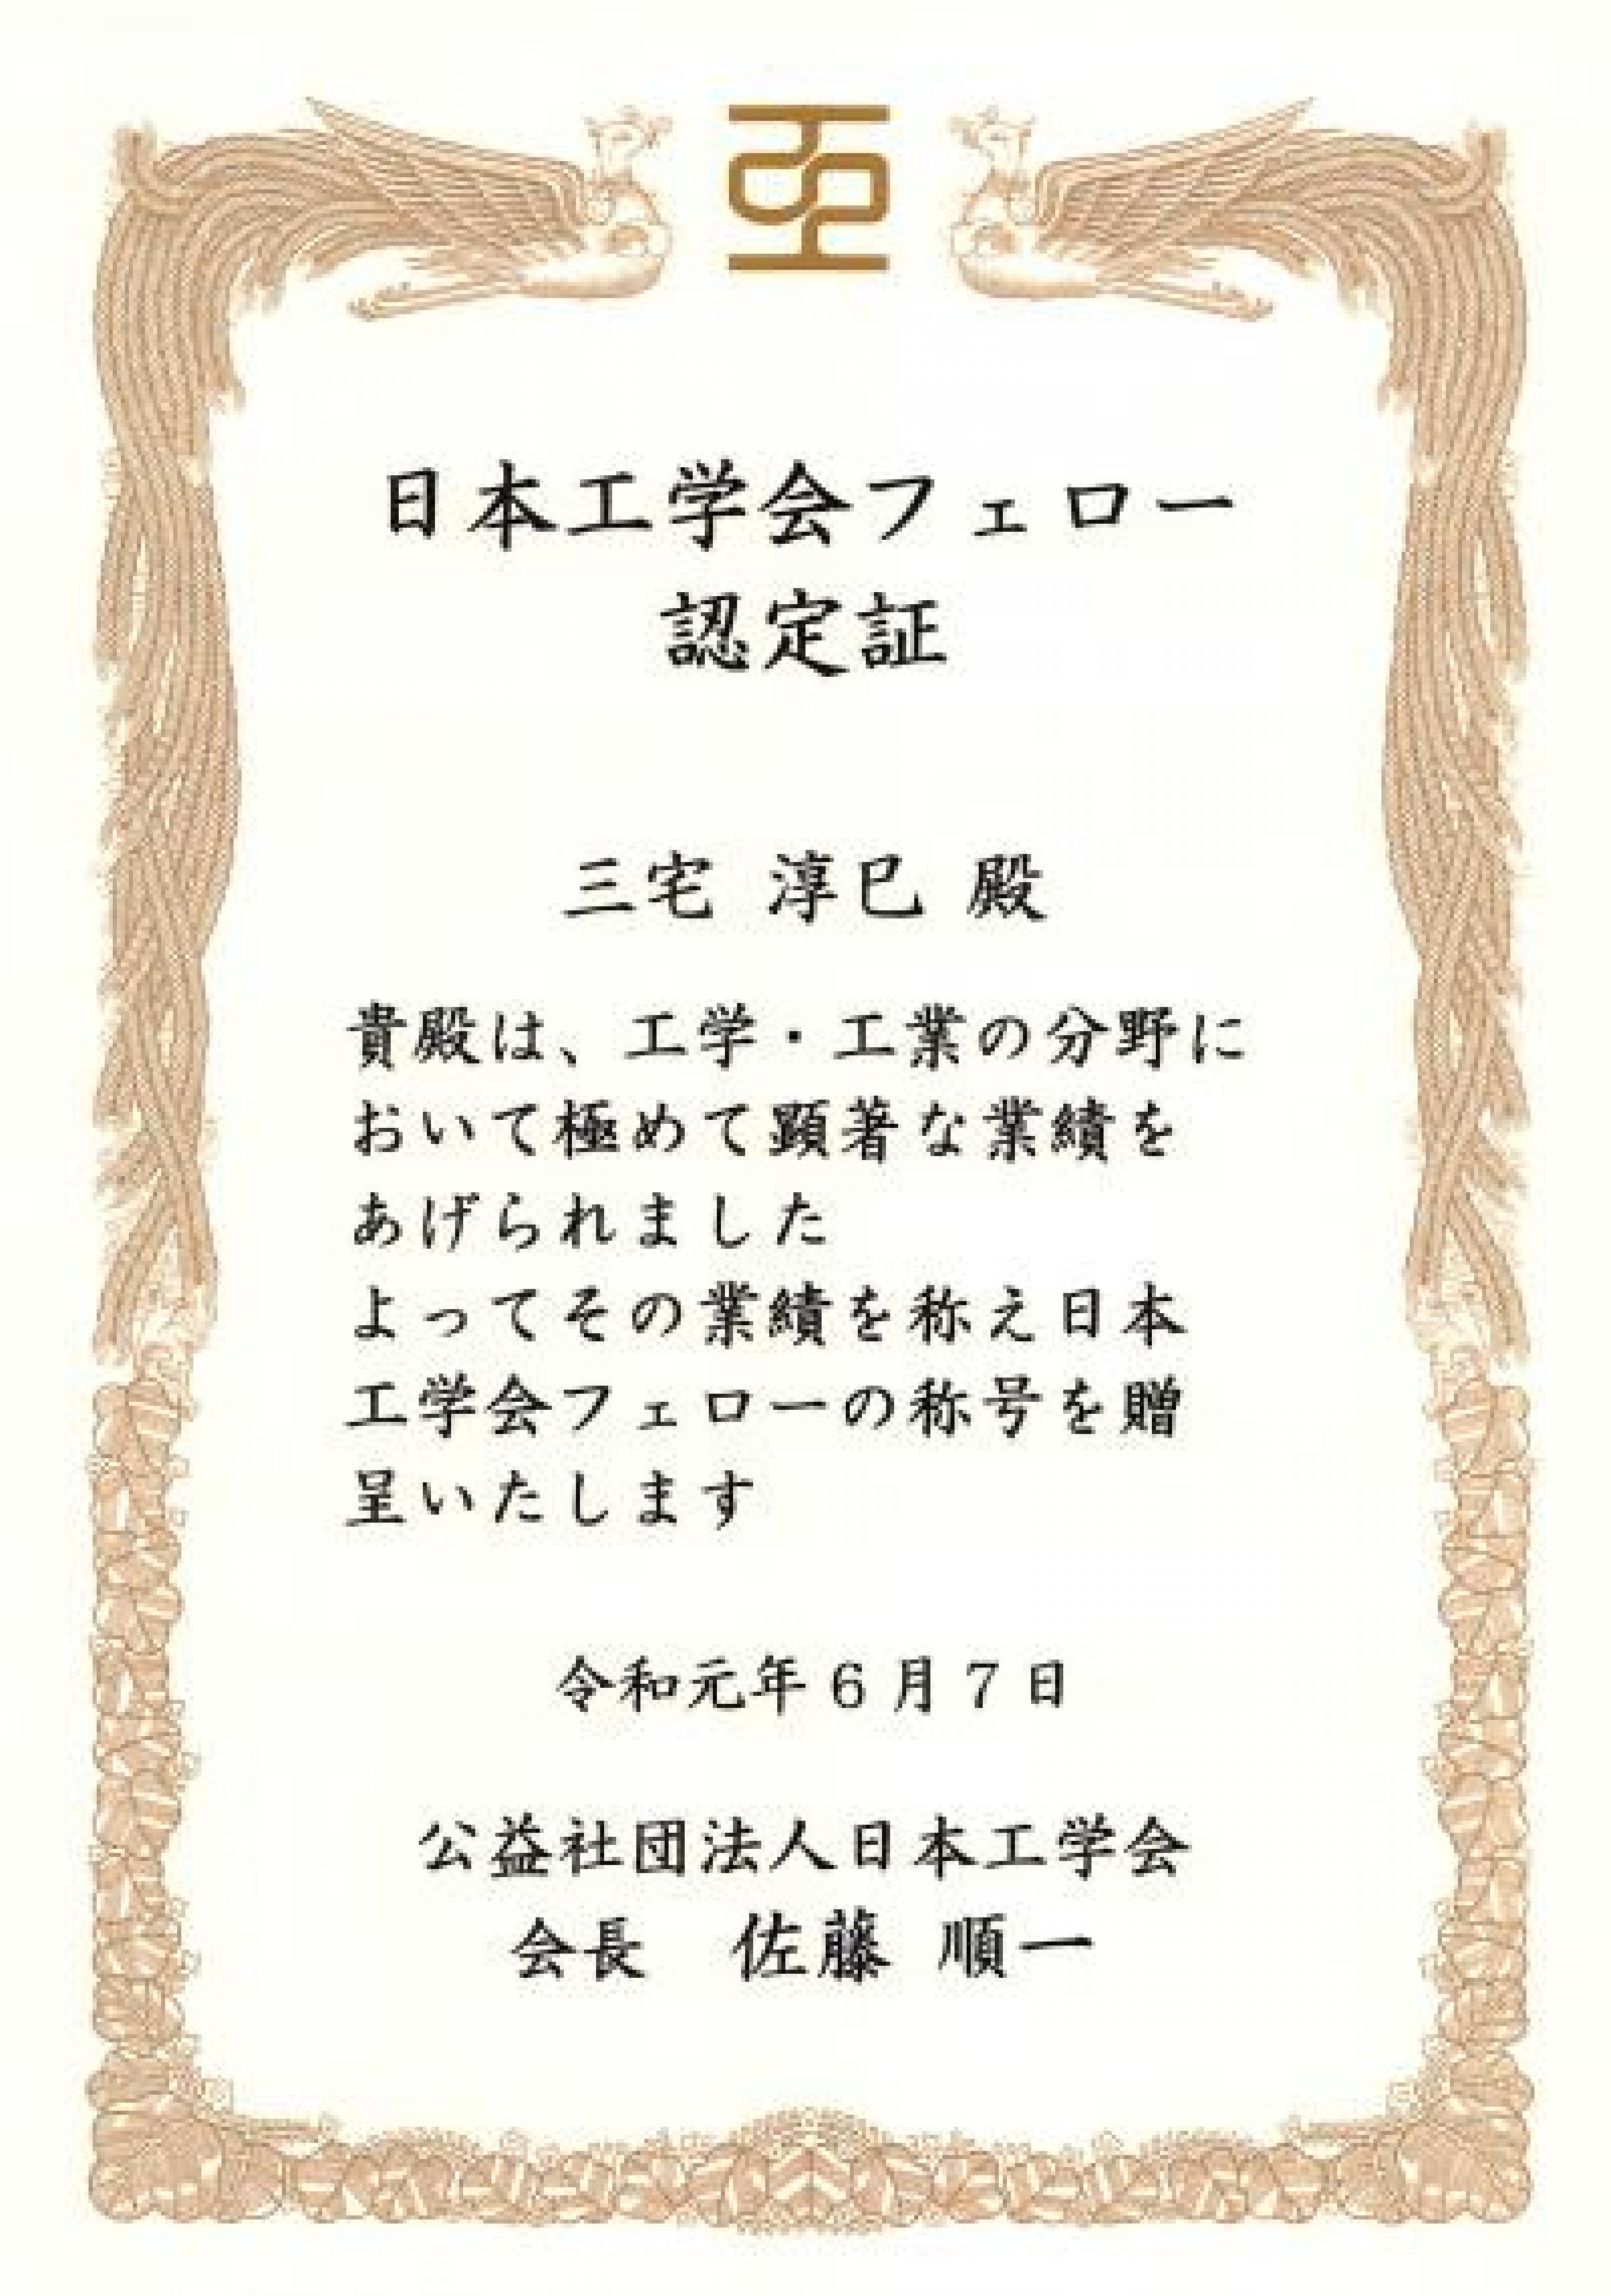 日本工学会フェロー
認定証
三宅 淳巳 殿
貴殿は、工学・工業の分野に
おいて極めて顕著な業績を
あげられました
よってその業績を称え日本
工学会フェローの称号を贈
呈いたします
令和元年6月7日
公益社団法人日本工学会
会長 佐藤 順一